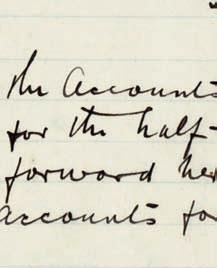 the Accounts
for the half-
forward her
Accounts fo